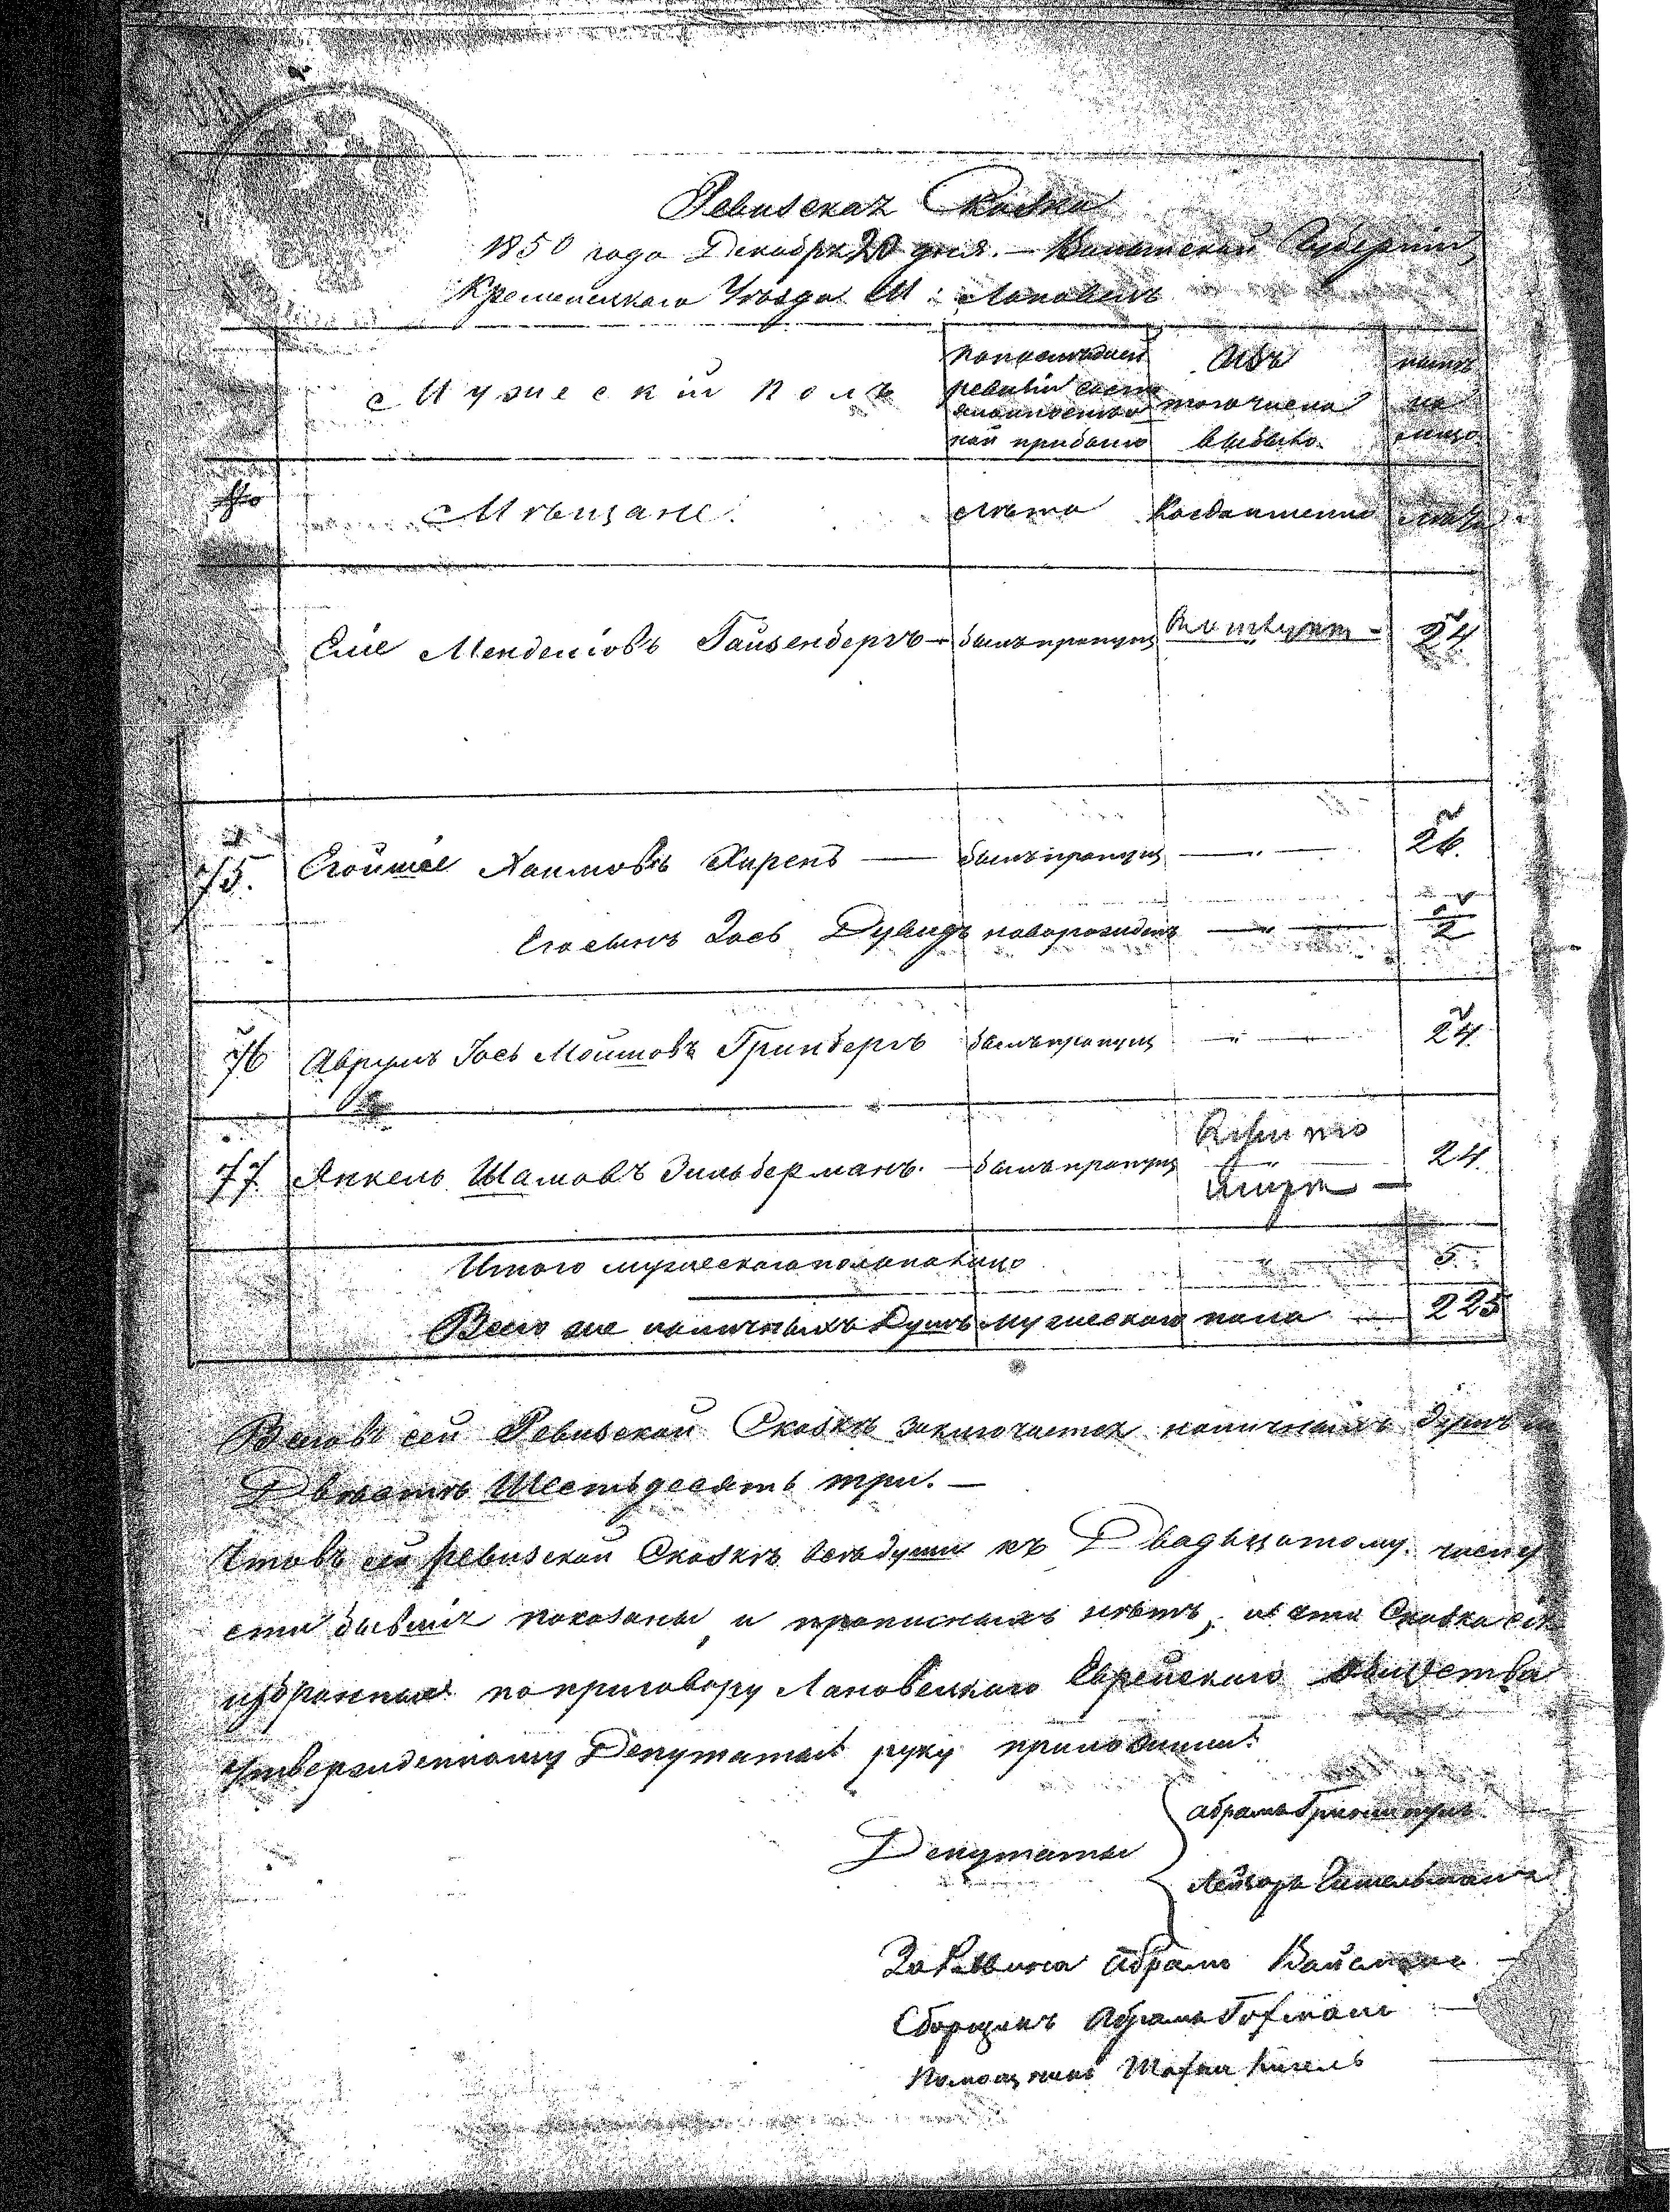 Ревизская Сказка
1850 года Декабря 20 дня. — Волынской Губернии
Кременецкаго Уѣзда М: Лановецъ
Мужескій полъ
По последней ревизіи состояло и после оной прибыло
Изъ того числа выбыло
нынѣ на лицо
№
Мѣщане.
Лѣта
Когда именно
Лѣта
Еліе Менделіовъ Гайзенбергъ — былъ пропущ — " — 24
75. Егойшіе Хаимовъ Хиренъ — былъ пропущ — " — 26.
Его сынъ Іось Дувидъ новорожденъ — " — 2
76 Аврумъ Іось Мошковъ Гринбергъ былъ пропущ — " — 24.
77. Янкель Шамовъ Зильберманъ. — былъ пропущ — " — 24.
Итого мужескаго пола на лицо — " — 5.
Всего же наличныхъ душъ мужескаго пола — 225
Всего въ сей Ревизской Сказкѣ заключается наличныхъ душъ
Двѣсти Шестьдесять три. —
Что въ сей ревизской Сказкѣ всѣ души къ Двадцатому. числу
бывшіе показаны, и прописныхъ нѣтъ, и сія Сказка
избранные по приговору Лановецкаго Еврейскаго Общества
утвержденному Депутаты руку приложили:
Депутаты
Абрамъ
Лейзоръ
За Раввина Абрамъ
Сборщикъ Абрамъ Гофманъ
Помощникъ